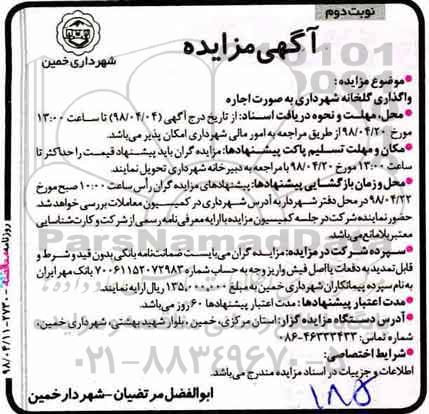 نوبت دوم
آگهی مزایده
شهرداری خمین
موضوع مزایده:
واگذاری گلخانه شهرداری به صورت اجاره
محل، مهلت و نحوه دریافت اسناد: از تاریخ درج آگهی (۹۸/۰۴/۰۴) تا ساعت ۱۳:۰۰
مورخ ۹۸/۰۴/۲۰ از طریق مراجعه به امور مالی شهرداری امکان پذیر می‌باشد.
مکان و مهلت تسلیم پاکت پیشنهادها: مزایده گران باید پیشنهاد قیمت را حداکثر تا
ساعت ۱۳:۰۰ مورخ ۹۸/۰۴/۲۰ با مراجعه به دبیرخانه شهرداری تحویل نمایند.
محل و زمان بازگشایی پیشنهادها: پیشنهادهای مزایده گران رأس ساعت ۱۰:۰۰ صبح مورخ
۹۸/۰۴/۲۲ در محل دفتر شهردار به آدرس شهرداری در کمیسیون معاملات بررسی خواهد شد.
حضور نماینده شرکت در جلسه کمیسیون مزایده با ارایه معرفی نامه رسمی از شرکت و کارت شناسایی
معتبر بلامانع می‌باشد.
سپرده شرکت در مزایده: مزایده گران می‌بایست ضمانت‌نامه بانکی بدون قید و شرط و
قابل تمدید به دفعات یا اصل فیش واریز وجه به حساب شماره ۷۰۰۶۱۱۵۲۰۷۲۹۸۳ بانک مهر ایران
به نام سپرده پیمانکاران شهرداری خمین به مبلغ ۱۳۵,۰۰۰,۰۰۰ ریال ارایه نمایند.
مدت اعتبار پیشنهادها: مدت اعتبار پیشنهادها ۶۰ روز می‌باشد.
آدرس دستگاه مزایده گزار: استان مرکزی، خمین، بلوار شهید بهشتی، شهرداری خمین،
شماره تماس: ۴۶۳۳۳۴۳۳-۰۸۶
شرایط اختصاصی:
اطلاعات و جزییات در اسناد مزایده مندرج می‌باشد.
ابوالفضل مرتضیان - شهردار خمین
۱۸۵
۹۸/۰۴/۱۱-۲۷۳۰
ParsNamadData
۰۲۱-۸۸۳۴۹۶۷۰